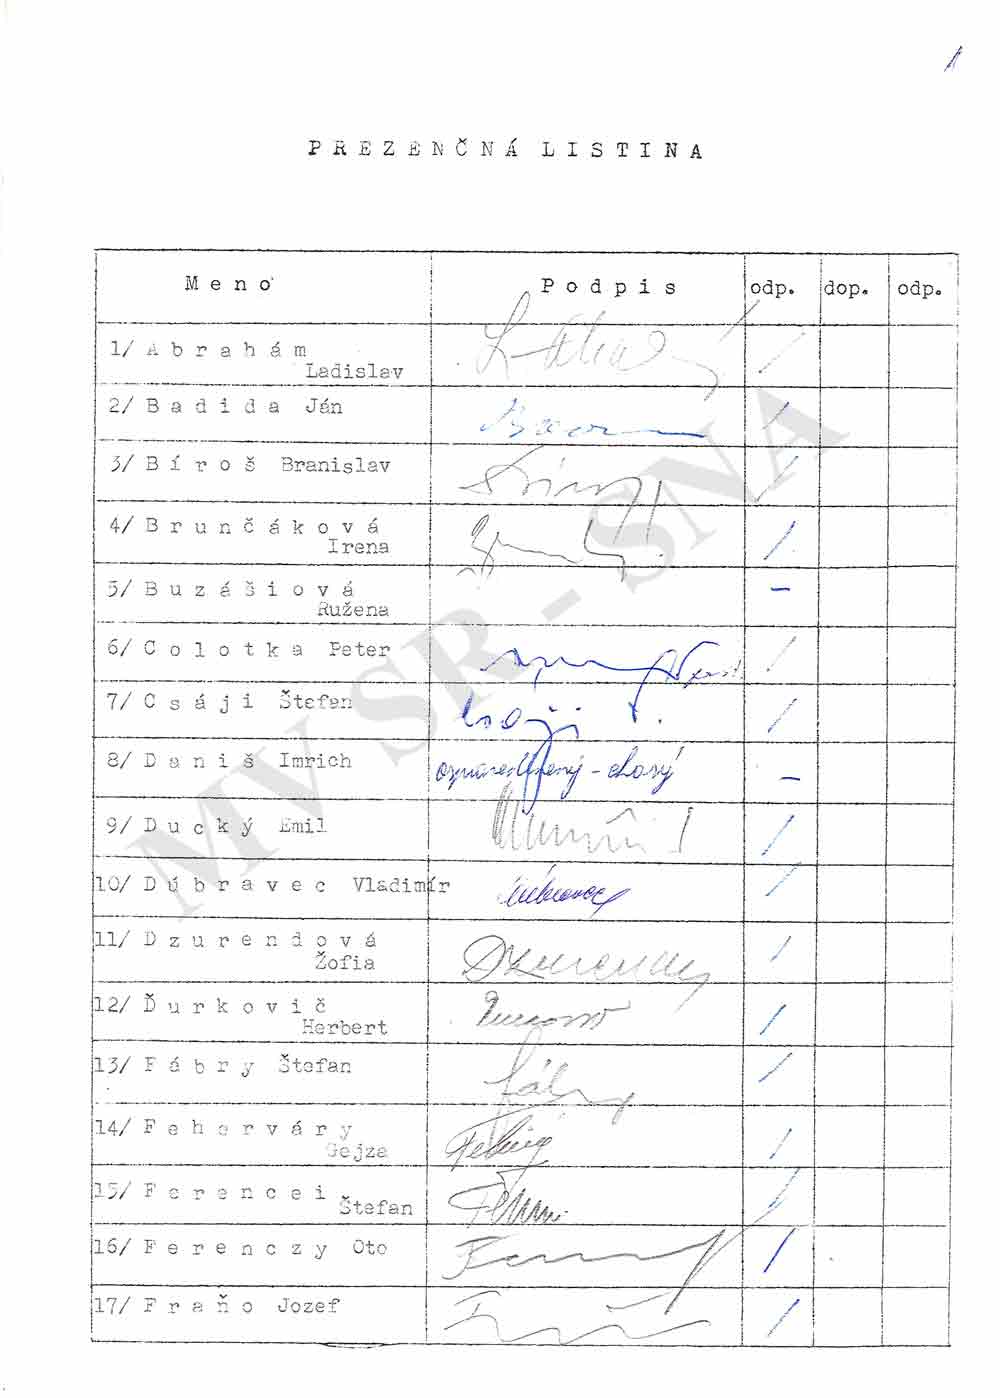 PREZENČNÁ LISTINA
Meno Podpis odp. dop. odp.
1/ Abrahám
Ladislav
2/ Badida Ján
3/ Bíroš Branislav
4/ Brunčáková
Irena
5/ Buzášiová
Ružena
–
6/ Colotka Peter
7/ Csáji Štefan
8/ Daniš Imrich ospravedlnený - chorý –
9/ Ducký Emil
10/ Dúbravec Vladimír
11/ Dzurendová
Žofia
12/ Ďurkovič
Herbert
13/ Fábry Štefan
14/ Feherváry
Gejza
15/ Ferencei
Štefan
16/ Ferenczy Oto
17/ Fraňo Jozef
MV SR - SNA